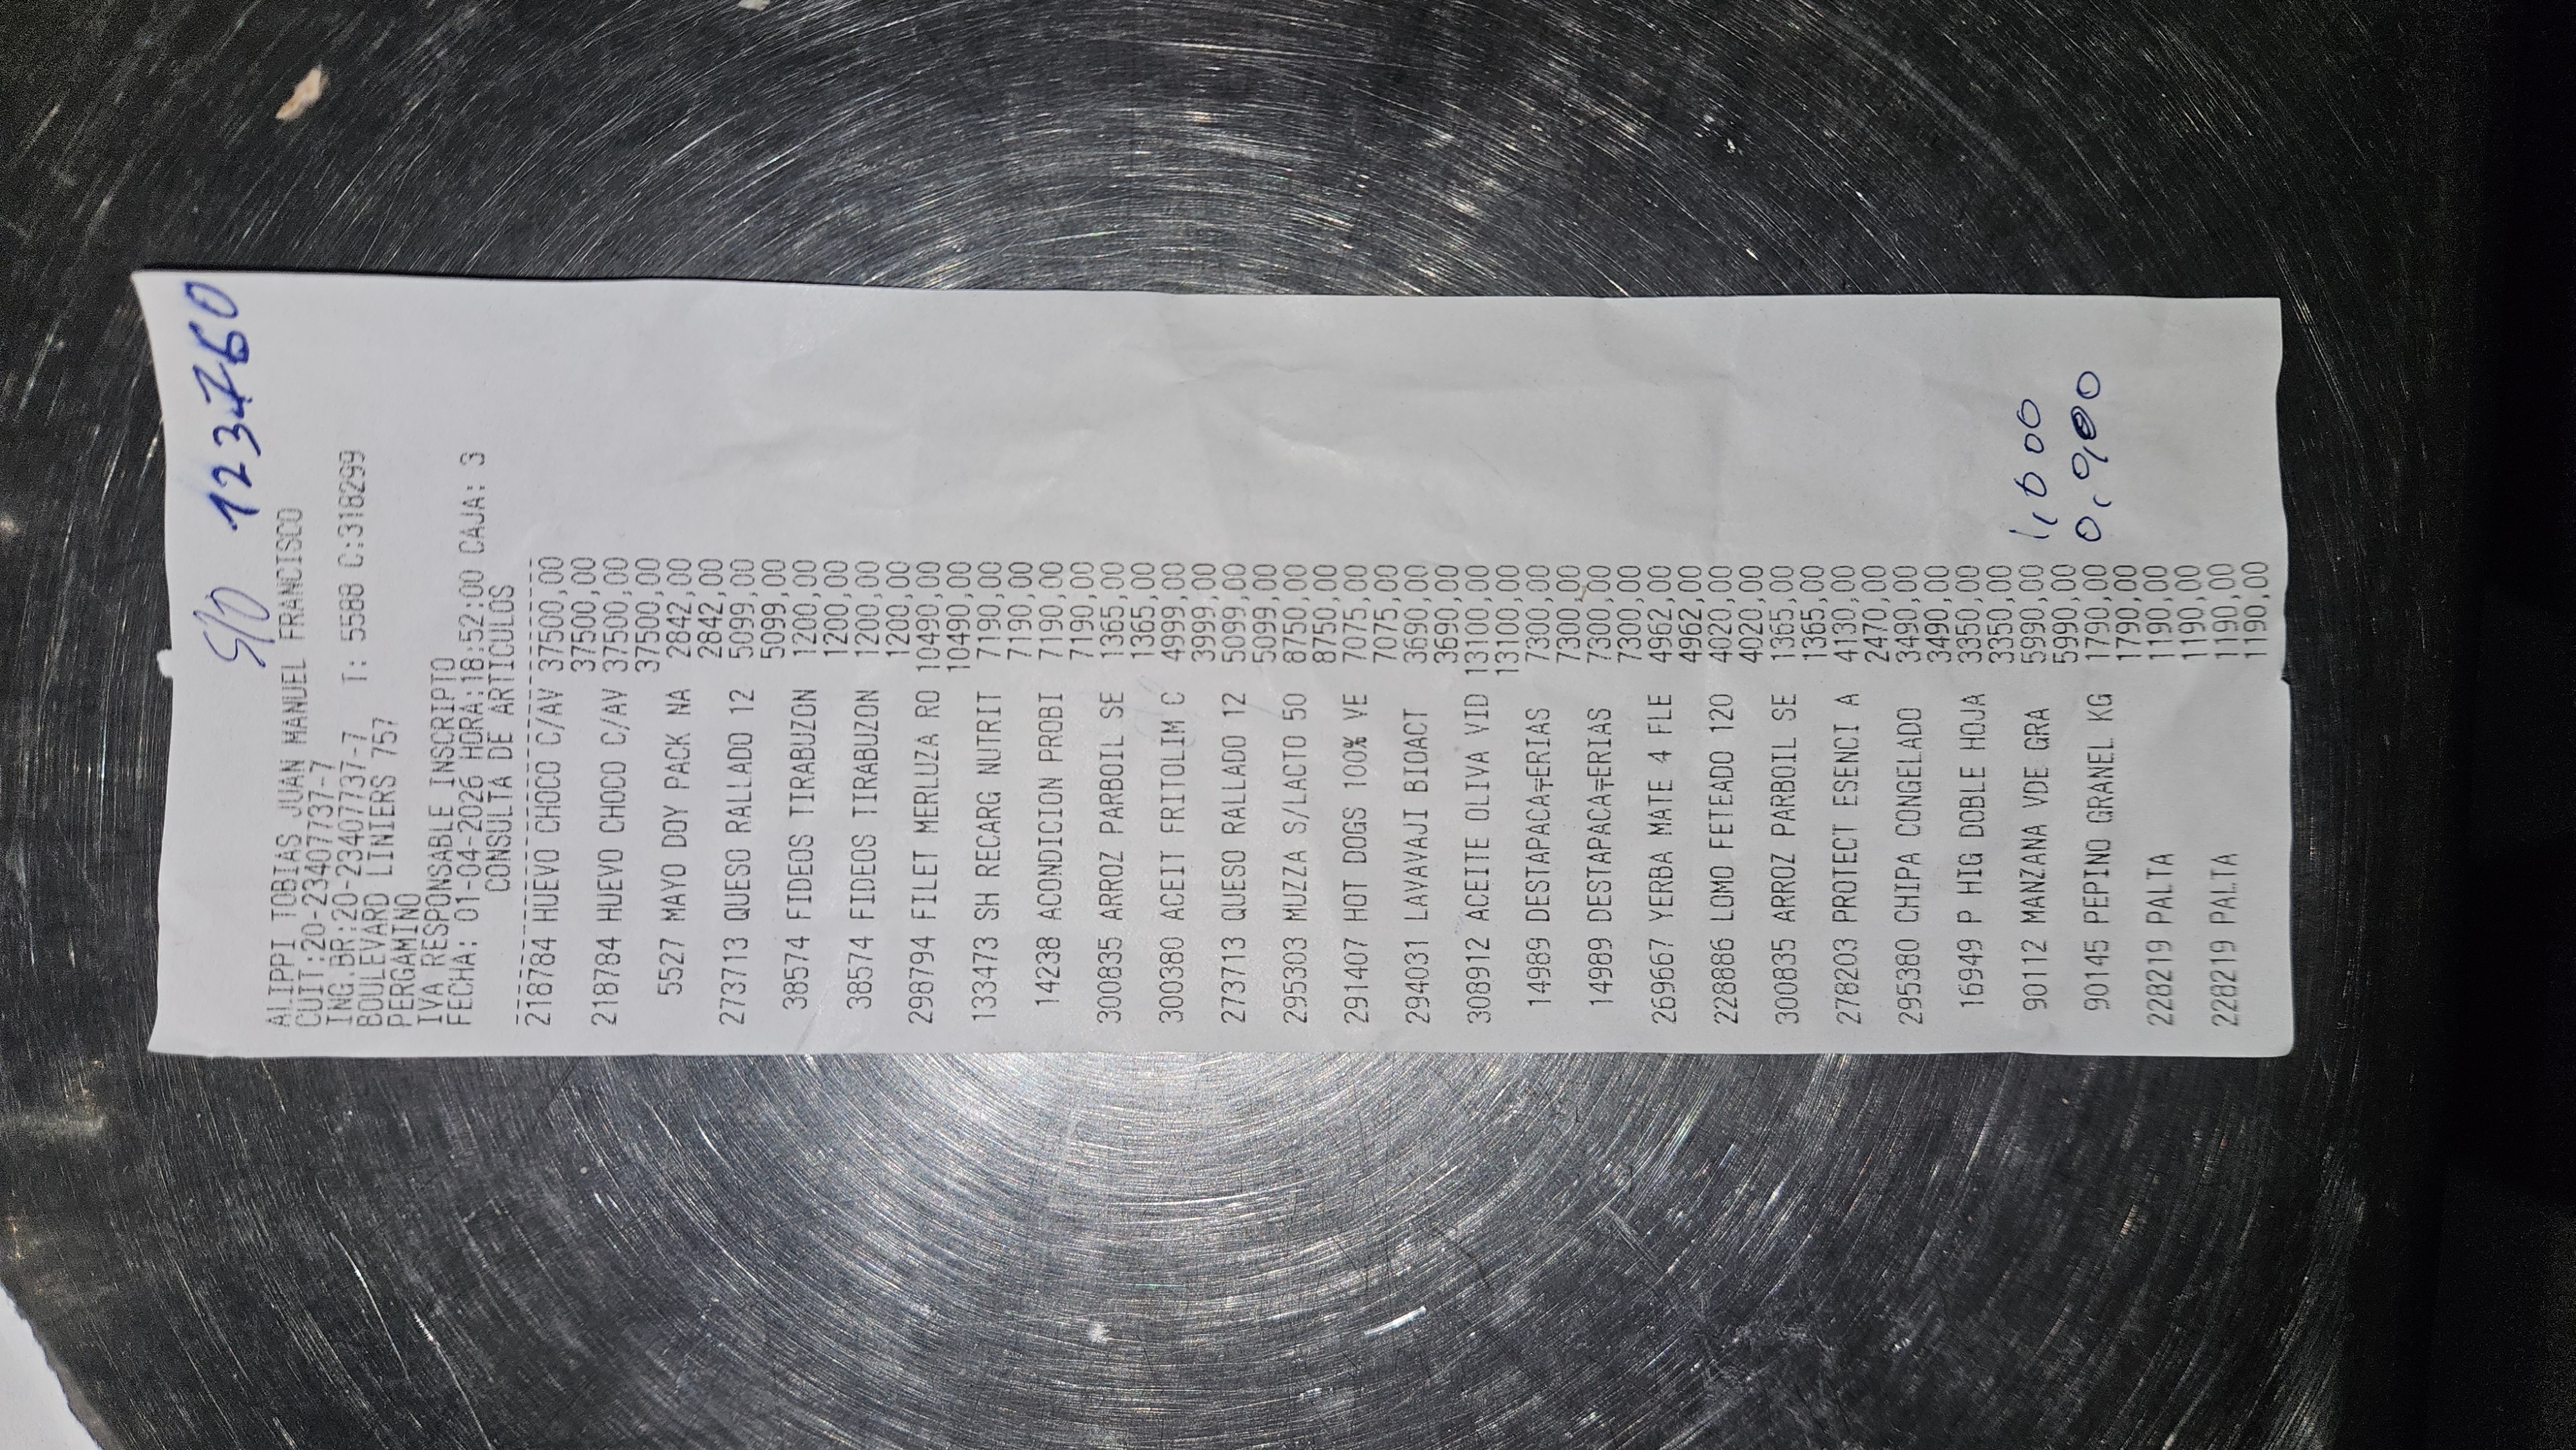 S/D 123760
ALIPPI TOBIAS JUAN MANUEL FRANCISCO
CUIT:20-23407737-7
ING.BR:20-23407737-7 T: 5588 C:318299
BOULEVARD LINIERS 757
PERGAMINO
IVA RESPONSABLE INSCRIPTO
FECHA: 01-04-2026 HORA:18:52:00 CAJA: 3
CONSULTA DE ARTICULOS
218784 HUEVO CHOCO C/AV 37500,00
37500,00
218784 HUEVO CHOCO C/AV 37500,00
37500,00
5527 MAYO DOY PACK NA 2842,00
2842,00
273713 QUESO RALLADO 12 5099,00
5099,00
38574 FIDEOS TIRABUZON 1200,00
1200,00
38574 FIDEOS TIRABUZON 1200,00
1200,00
298794 FILET MERLUZA RO 10490,00
10490,00
133473 SH RECARG NUTRIT 7190,00
7190,00
14238 ACONDICION PROBI 7190,00
7190,00
300835 ARROZ PARBOIL SE 1365,00
1365,00
300380 ACEIT FRITOLIM C 4999,00
3999,00
273713 QUESO RALLADO 12 5099,00
5099,00
295303 MUZZA S/LACTO 50 8750,00
8750,00
291407 HOT DOGS 100% VE 7075,00
7075,00
294031 LAVAVAJI BIOACT 3690,00
3690,00
308912 ACEITE OLIVA VID 13100,00
13100,00
14989 DESTAPACA╤ERIAS 7300,00
7300,00
14989 DESTAPACA╤ERIAS 7300,00
7300,00
269667 YERBA MATE 4 FLE 4962,00
4962,00
228886 LOMO FETEADO 120 4020,00
4020,00
300835 ARROZ PARBOIL SE 1365,00
1365,00
278203 PROTECT ESENCI A 4130,00
2470,00
295380 CHIPA CONGELADO 3490,00
3490,00
16949 P HIG DOBLE HOJA 3350,00
3350,00
90112 MANZANA VDE GRA 5990,00 1,600
5990,00
90145 PEPINO GRANEL KG 1790,00
1790,00
228219 PALTA 1190,00
1190,00
228219 PALTA 1190,00
1190,00